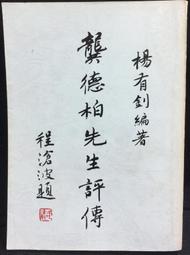 楊有釗編著
龔德柏先生評傳
程滄波題